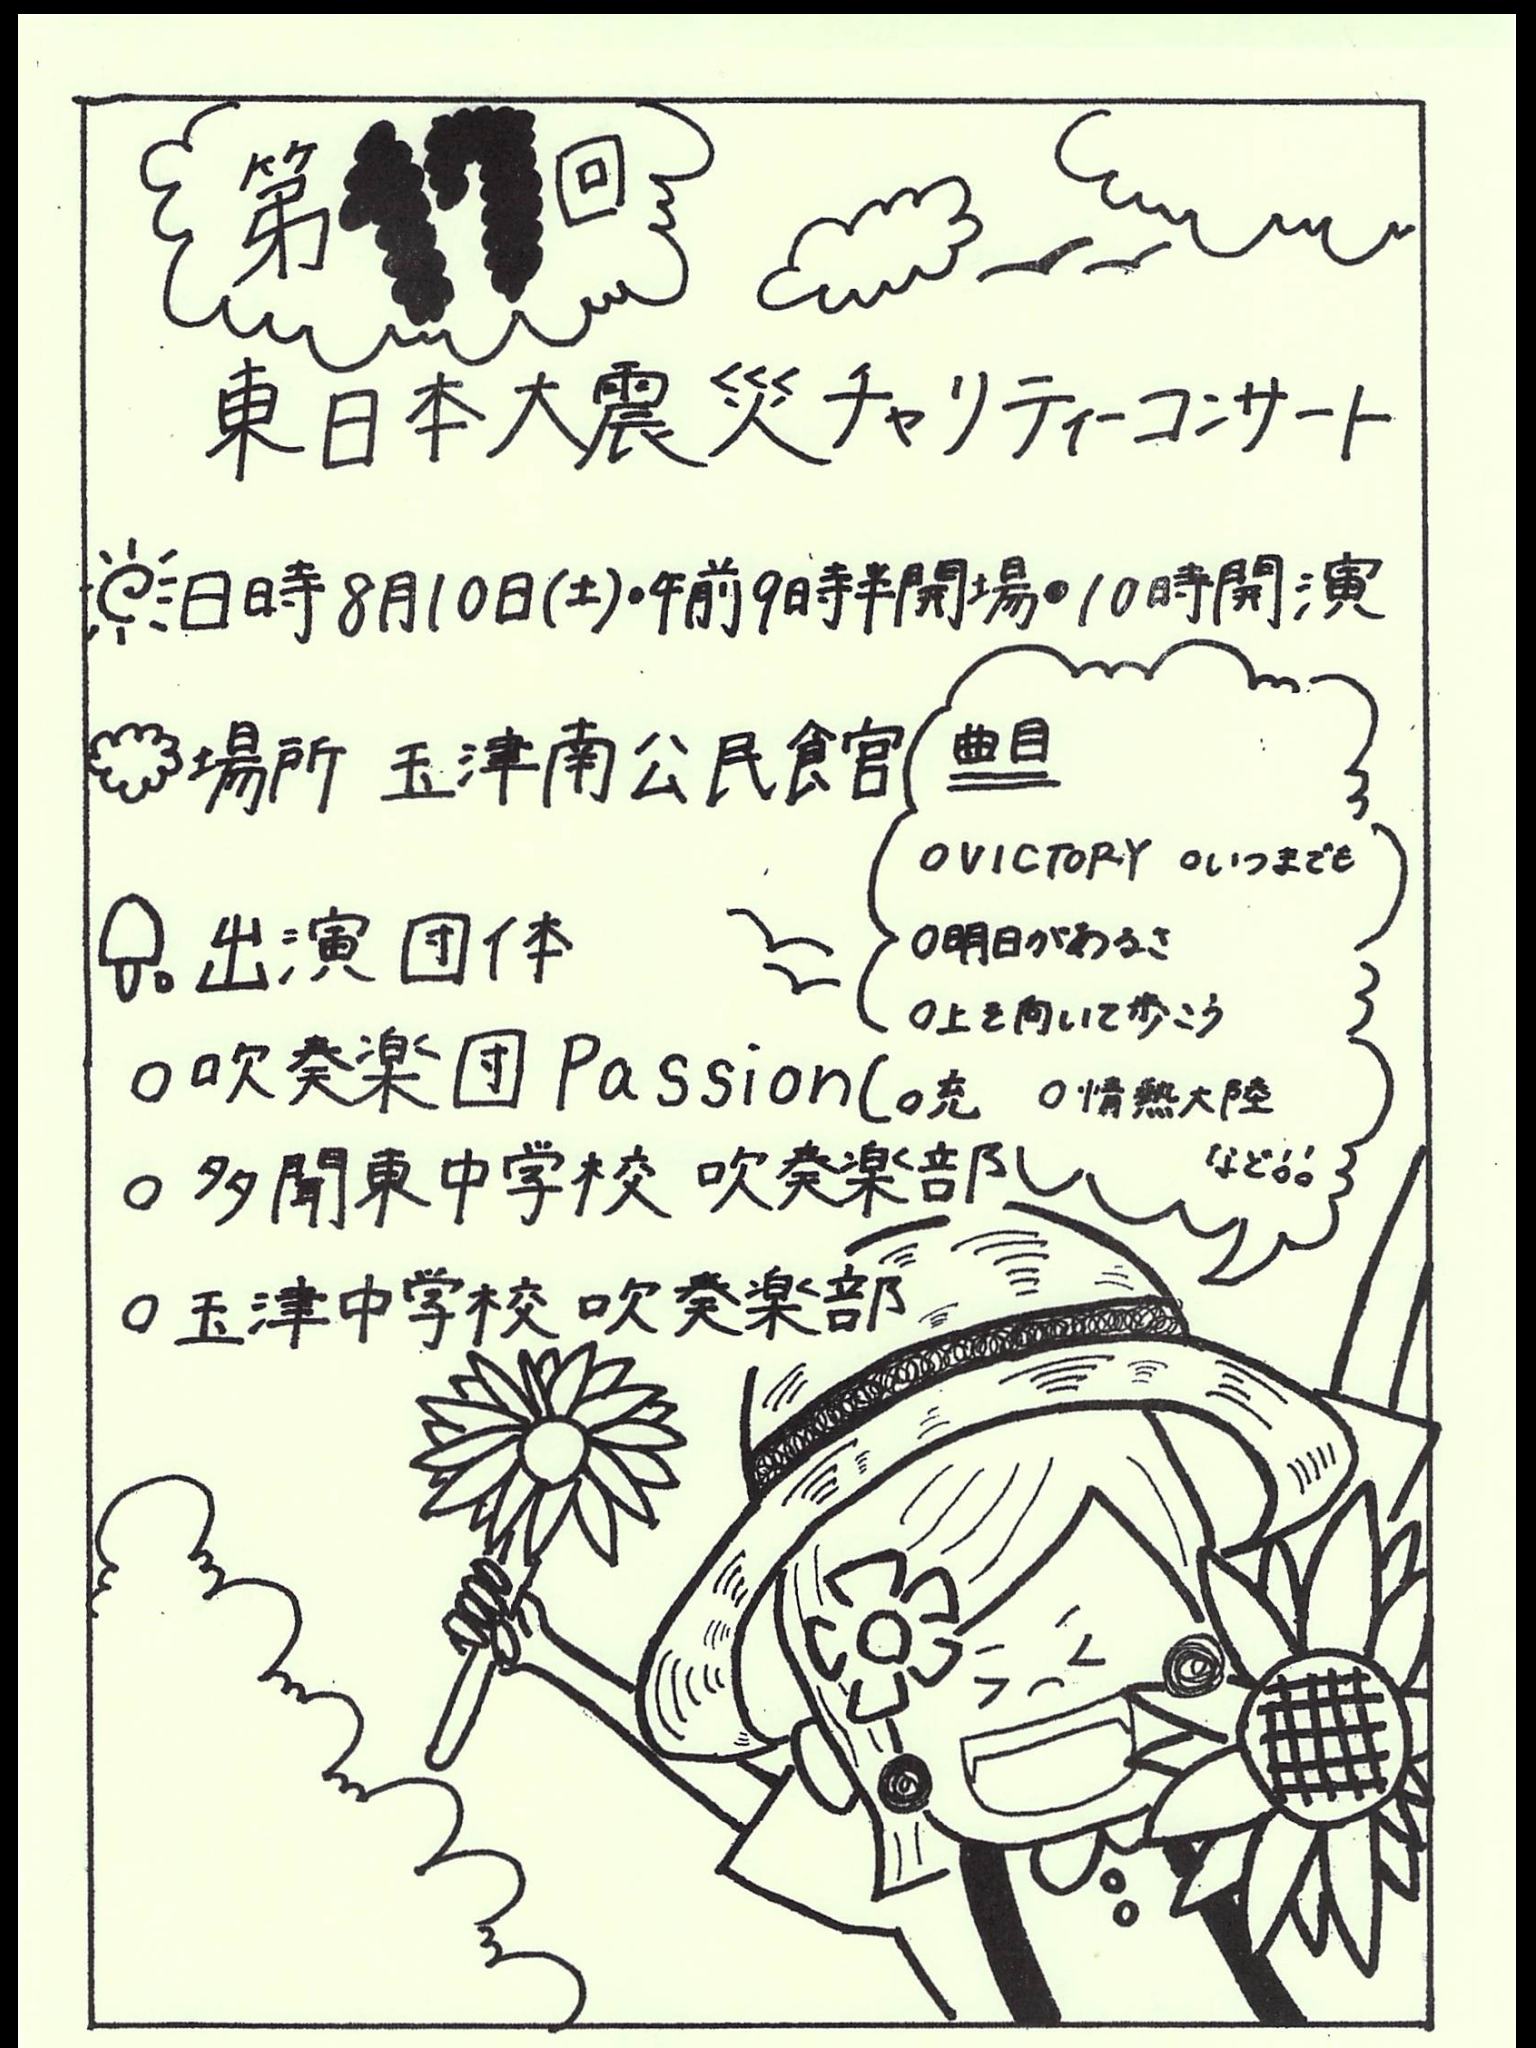 第17回
東日本大震災チャリティーコンサート
日時8月10日(土)・午前9時半開場・10時開演
場所 玉津南公民館
曲目
○VICTORY ○いつまでも
○明日があるさ
○上を向いて歩こう
○充 ○情熱大陸
など
出演団体
○吹奏楽団Passion
○多聞東中学校 吹奏楽部
○玉津中学校 吹奏楽部